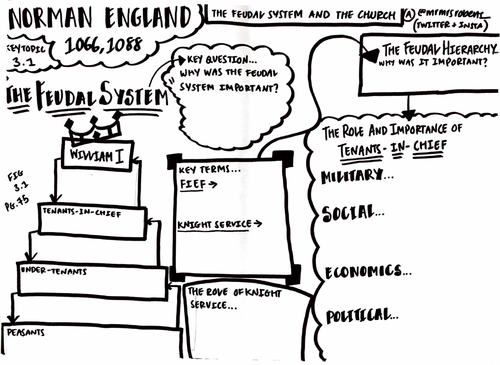 NORMAN ENGLAND
1066,1088
KEY TOPIC
3.1
THE FEUDAL SYSTEM AND THE CHURCH
@mrmrsroberts_
(TWITTER + INSTA)
THE FEUDAL SYSTEM
KEY QUESTION...
WHY WAS THE FEUDAL
SYSTEM IMPORTANT?
THE FEUDAL HIERARCHY
WHY WAS IT IMPORTANT?
FIG
3.1
PG.75
WILLIAM I
TENANTS-IN-CHIEF
UNDER-TENANTS
PEASANTS
KEY TERMS...
FIEF →
KNIGHT SERVICE →
THE ROLE OF KNIGHT
SERVICE...
THE ROLE AND IMPORTANCE OF
TENANTS-IN-CHIEF
MILITARY...
SOCIAL...
ECONOMICS...
POLITICAL...